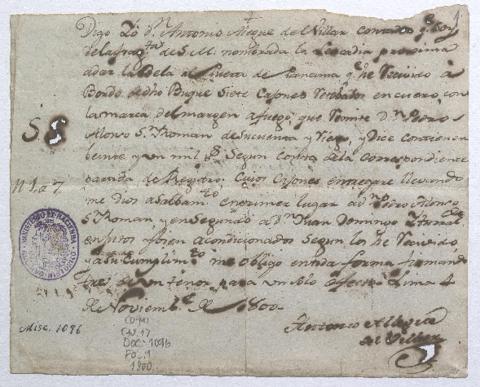 1
Digo Yo Dn. Antonio Alegre del Villar contador qe. soy
de la frag.ta de S. M. nombrada la Leocadia proxima
a dar la Vela al Puerto de Panama qe. he Recivido à
Bordo de dho Buque Siete Cajones Retobados en cuero con
la marca del margen a fuego, que Remite Dn. Pedro
Alonso Sn. Roman de su cuenta y Riesgo, y Dice contienen
beinte y un mil ps. Segun consta de la correspondiente
partida de Registro; Cuios Cajones entregare llevando
me Dios a Salbam.to en primer lugar a Dn. Pedro Alonso
Sn. Roman y en Segundo à Dn. Juan Domingo
bien acondicionados Segun los he Recivido,
y a su Cumplim.to me obligo en toda forma firmando
tres de un tenor para un solo efecto Lima 4
de Noviembre de 1800
S. S
N 1 a 7
Antonio Alegre
del Villar
MINISTERIO DE HACIENDA
Misc. 1096
CO-MI
CAJ. 17
DOC. 1096
FO. 1
1800